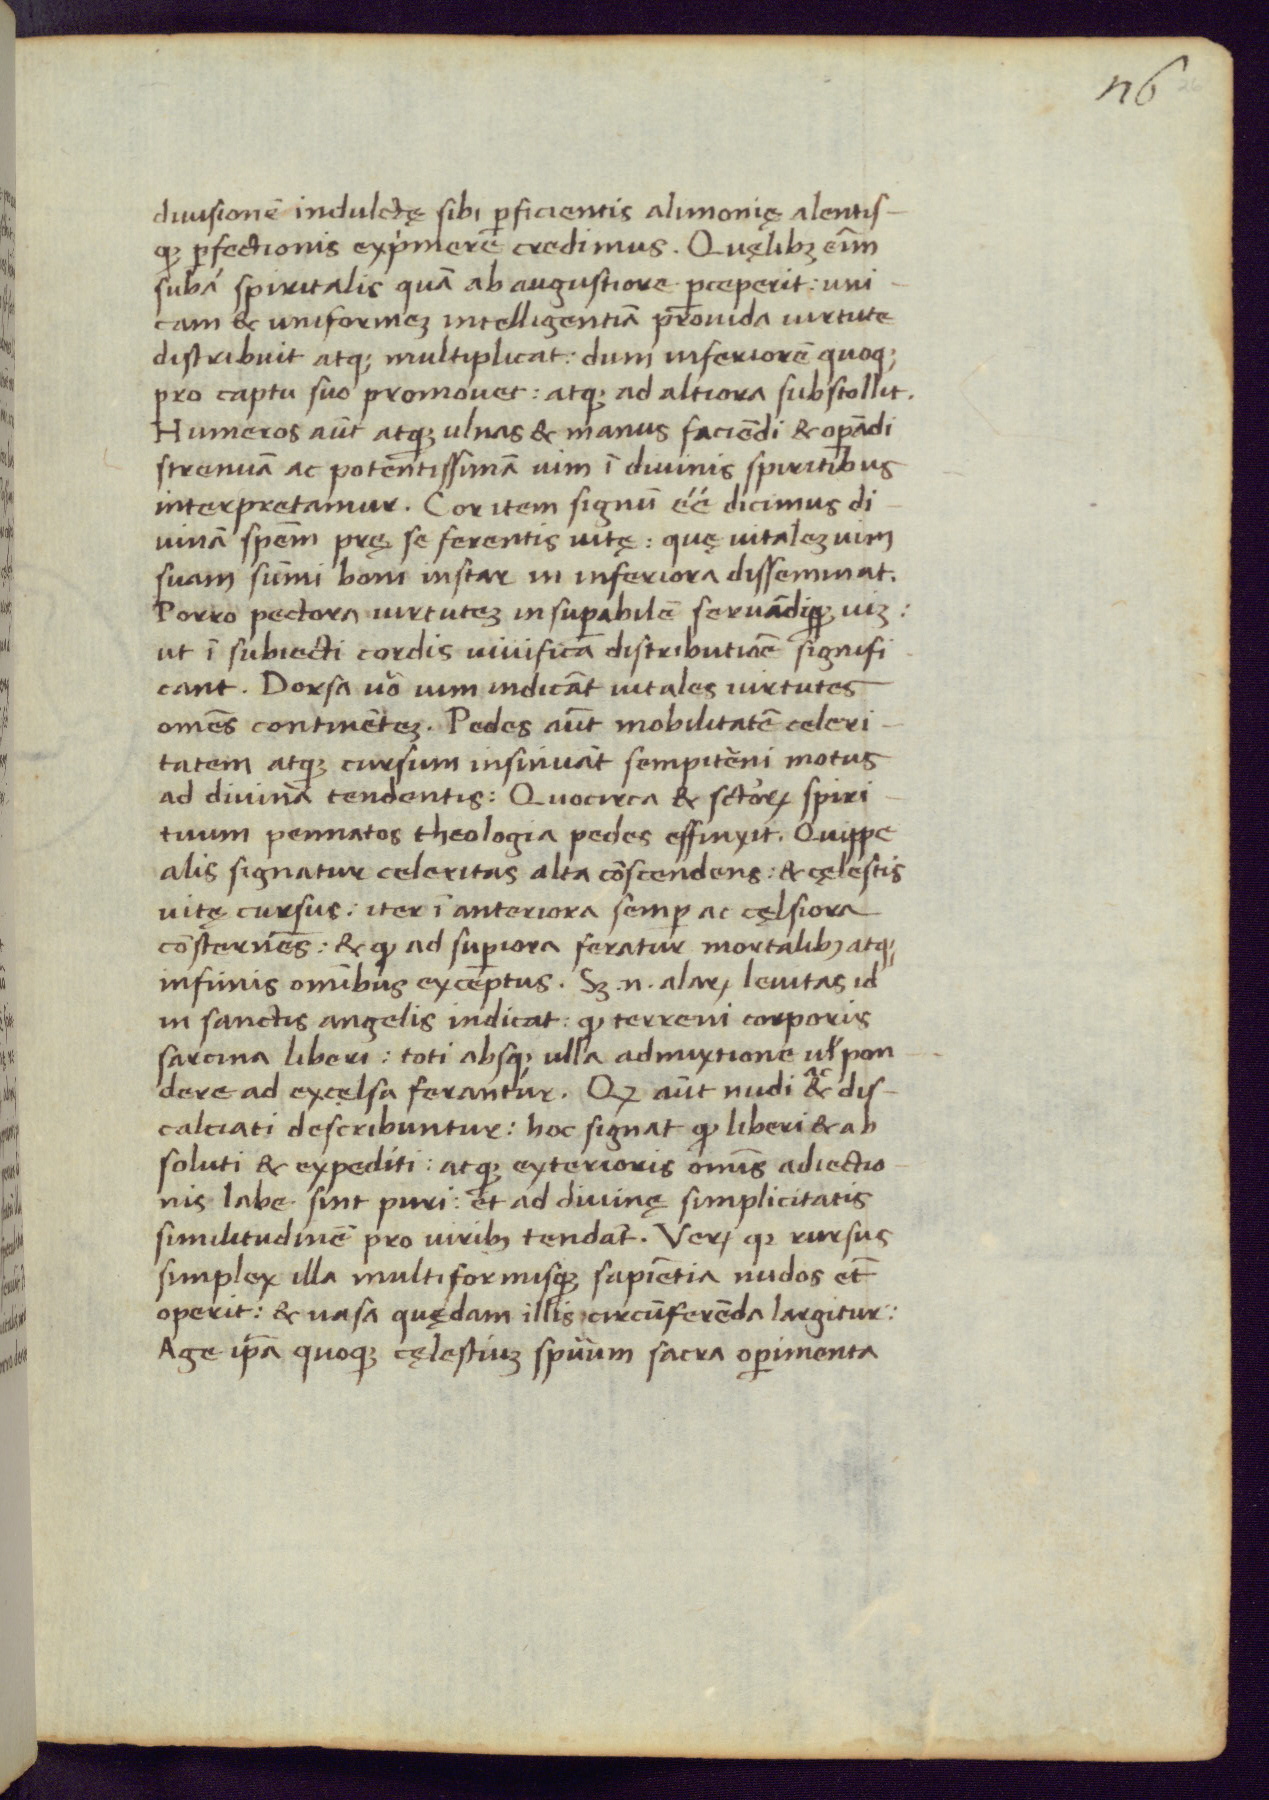 n6 26
diuisionē indulctę sibi ꝑficientis alimonię alentis-
qꝫ ꝑfectionis exp̄merē credimus. Quęlibꝫ eīm
subā spiritalis quā ab augustiore ꝑceperit: uni-
cam & uniformeꝫ intelligentiā prouida uirtute
distribuit atqꝫ multiplicat: dum inferiorē quoqꝫ
pro captu suo promouet: atqꝫ ad altiora substollit.
Humeros aūt atqꝫ ulnas & manus faciēdi & oꝑādi
strenuā ac potentissimā uim ī diuinis spiritibus
interpretamur. Cor item signū éé dicimus di-
uinā spēm prę se ferentis uitę: quę uitaleꝫ uim
suam sūmi boni instar in inferiora disseminat.
Porro pectora uirtuteꝫ insuꝑabilē seruādiqꝫ uiꝫ:
ut ī subiecti cordis uiuificā distributiōē signifi-
cant. Dorsa uō uim indicāt uitales uirtutes
omēs continēteꝫ. Pedes aūt mobilitatē celeri-
tatem atqꝫ cursum insinuāt sempitēni motus
ad diuina tendentis: Quocirca & sctōꝝ spiri-
tuum pennatos theologia pedes effinxit. Quippe
alis signatur celeritas alta cōscendens: & cęlestis
uitę cursus: iter ī anteriora semꝑ ac cęlsiora
cōsternēs: & ꝙ ad suꝑiora feratur mortalibꝫ atqꝫ
infimis omībus exceptus. Sꝫ .n. alaꝝ leuitas id
in sanctis angelis indicat: ꝙ terreni corporis
sarcina liberi: toti absqꝫ ulla admixtione uł pon-
dere ad excęlsa ferantur. Qꝫ aūt nudi & ac dis-
calciati describuntur: hoc signat ꝙ liberi & ab
soluti & expediti: atqꝫ exterioris omīs adiectio-
nis labe sint puri: et ad diuinę simplicitatis
similitudinē pro uiribꝫ tendāt. Veꝝ qꝫ rursus
simplex illa multiformisqꝫ sapiētia nudos et
operit: & uasa quędam illis circūferēda largitur:
Age ip̄a quoqꝫ cęlestiuꝫ spūum sacra oꝑimenta